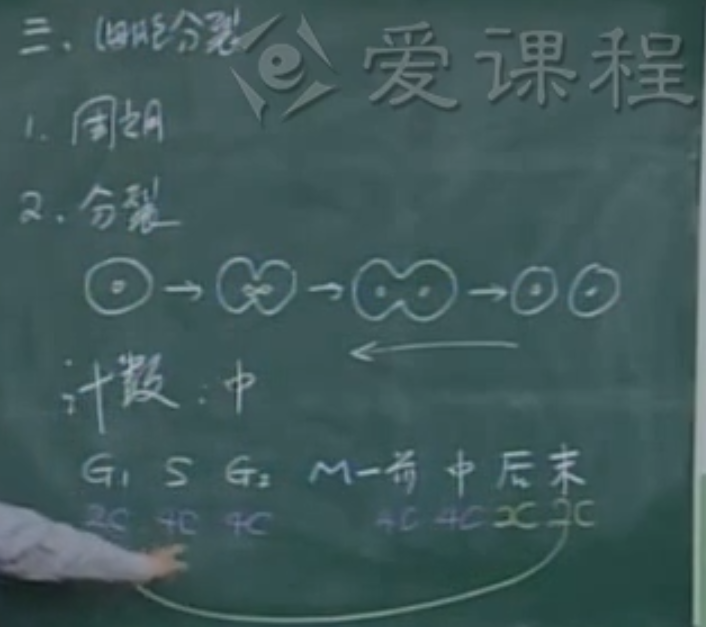 三、细胞分裂
爱课程
1. 周期
2. 分裂
计数:中
G₁ S G₂ M—前 中 后 末
2C 4C 4C 4C 4C 2C 2C